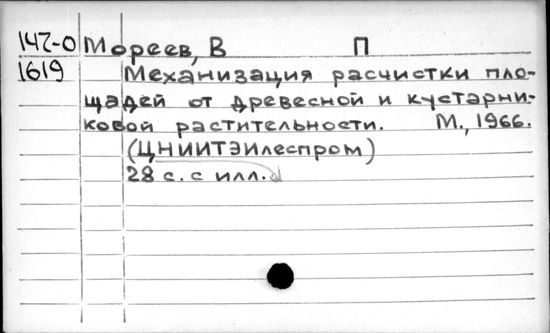 147-0 Мореев, В П
1619 Механизация расчистки пло-
щадей от древесной и кустарни-
ковой растительности. М., 1966.
(ЦНИИТЭИлеспром)
28 с. с илл.